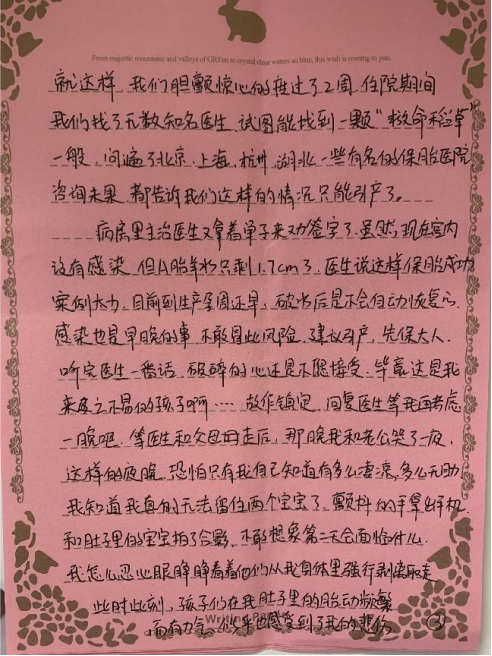 From majestic mountains and valleys of GREen to crystal clear waters so blue, this wish is coming to you.
就这样，我们胆颤惊心的挺过了2周，住院期间
我们找了无数知名医生，试图能找到一颗“救命稻草”
一般，问遍了北京、上海、杭州、湖北一些有名的保胎医院
咨询未果，都告诉我们这样的情况只能引产了。
病房里主治医生又拿着单子来劝签字了，虽然，现在宫内
没有感染，但A胎羊水只剩1.7cm了，医生说这样保胎成功
案例太少，目前到生产孕周还早，破水后是不会自动恢复的，
感染也是早晚的事，不敢冒此风险，建议引产，先保大人，
听完医生一番话，破碎的心还是不愿接受，毕竟这是我
来之不易的孩子啊……故作镇定，回复医生等我再考虑
一晚吧，等医生和父母走后，那晚我和老公哭了一夜，
这样的夜晚，恐怕只有我自己知道有多么凄凉，多么无助
我知道我真的无法留住两个宝宝了，颤抖的手拿出手机
和肚子里的宝宝拍了合影，不敢想象第二天会面临什么，
我怎么忍心眼睁睁看着他们从我身体里强行剥离取走
此时此刻，孩子们在我肚子里的胎动频繁
而有力气，似乎也感受到了我的悲伤
③